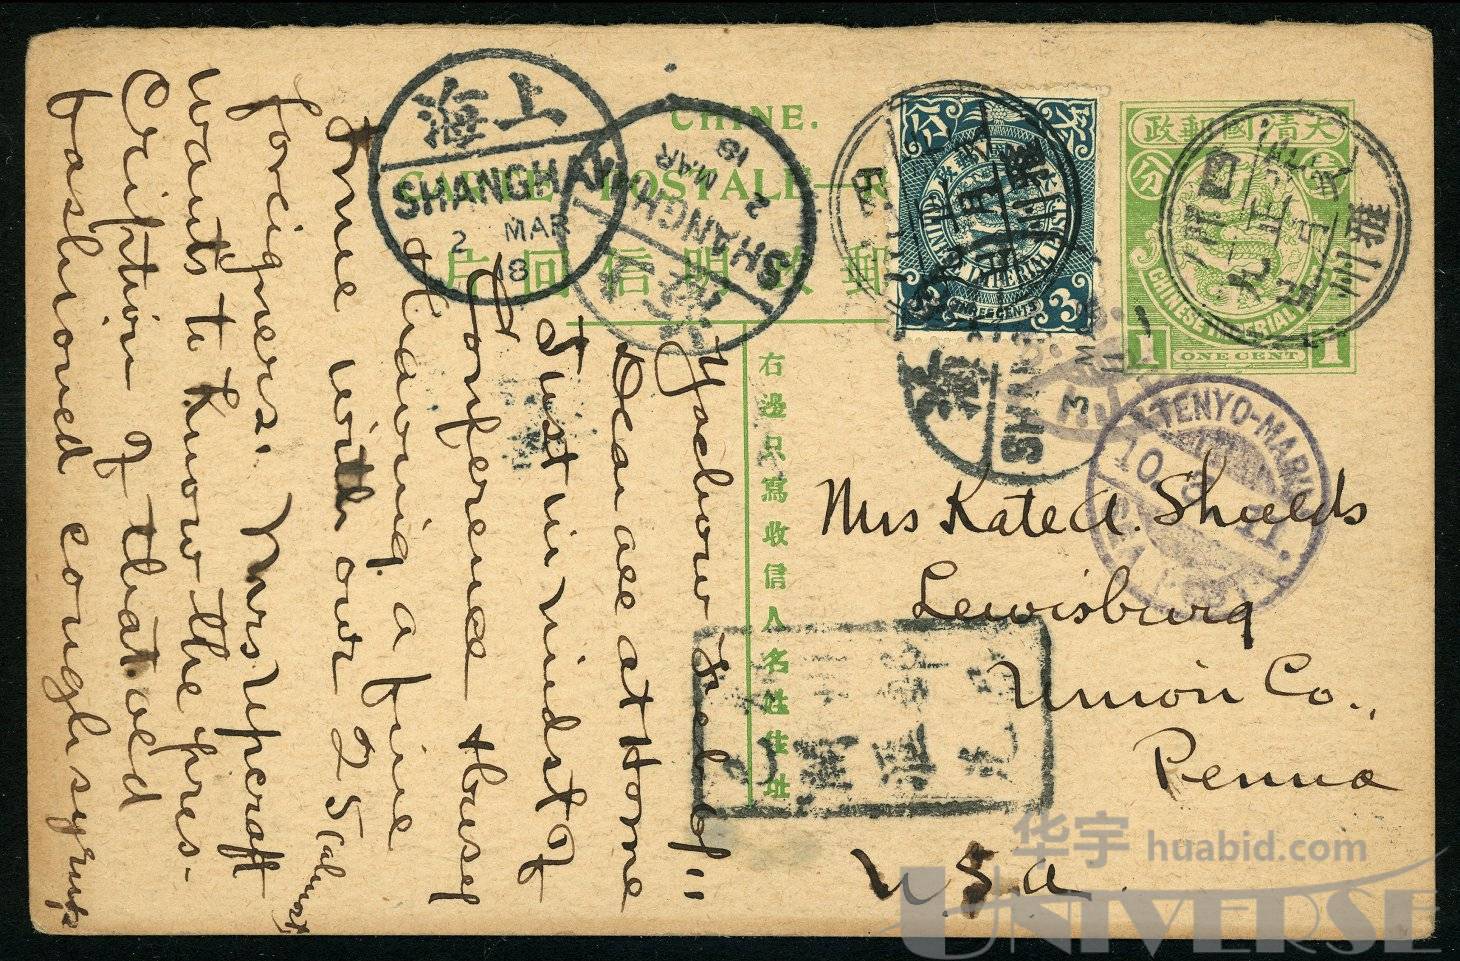 CHINE.
CARTE POSTALE
郵政明信回片
大清國郵政
壹分
CHINESE IMPERIAL POST
1 ONE CENT 1
3 THREE CENTS 3
上海
SHANGHAI
2 MAR 18
SHANGHAI
2 MAR 18
四川
雅州
TENYO-MARU
右邊只寫收信人名姓住址
Mrs Kate A. Shields
Lewisburg
Union Co.,
Penna
U.S.A.
Yachow Feb 9/11
Dear all at Home
Just in midst of
Conference &
having a fine
time with over 25 (almost
foreigners. Mrs Upcraft
wants to know the pres-
cription of that old
fashioned cough syrup
华宇 huabid.com
UNIVERSE